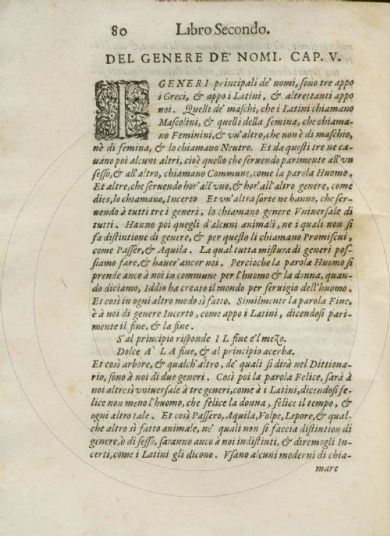 80 Libro Secondo.
DEL GENERE DE' NOMI. CAP. V.
I GENERI principali de' nomi, sono tre appo
i Greci, & appo i Latini, & altrettanti appo
noi. Quelli de' maschi, che i Latini chiamano
Mascolini, & quelli della femina, che chiama-
no Feminini, & vn'altro, che non è di maschio,
nè di femina, & lo chiamano Neutro. Et da questi tre ne ca-
uano poi alcuni altri, cioè quello che seruendo parimente all'vn
sesso, & all'altro, chiamano Commune, come la parola Huomo.
Et altre, che seruendo hor'all'vno, & hor'all'altro genere, come
dies, lo chiamano, Incerto Et vn'altra sorte ne hanno, che ser-
uendo à tutti tre i generi, lo chiamano genere Vniuersale di
tutti. Hanno poi quegli d'alcuni animali, ne i quali non si
fa distintione di genere, & per questo li chiamano Promiscui,
come Passer, & Aquila. La qual tutta mistura di generi pos-
siamo fare, & hauer'ancor noi. Percioche la parola Huomo si
prende anco à noi in commune per l'huomo & la donna, quan-
do diciamo, Iddio ha creato il mondo per seruigio dell'huomo.
Et così in ogni altro modo sì fatto. Similmente la parola Fine,
è à noi di genere Incerto, come appo i Latini, dicendosi pari-
mente il fine, & la fine.
S'al principio risponde IL fine e'l mezo.
Dolce A' LA fine, & al principio acerba.
Et così arbore, & qualch'altro, de' quali si dirà nel Dittiona-
rio, sono à noi di due generi. Così poi la parola Felice, sarà à
noi altresì vniuersale à tre generi, come à i Latini, dicendosi fe-
lice non meno l'huomo, che felice la donna, felice il tempo, &
ogni altro tale. Et così Passero, Aquila, Volpe, Lepore, & qual-
che altro sì fatto animale, ne' quali non si faccia distintion di
genere, ò di sesso, saranno anco à noi indistinti, & diremogli In-
certi, come i Latini gli dicono. Vsano alcuni moderni di chia-
mare